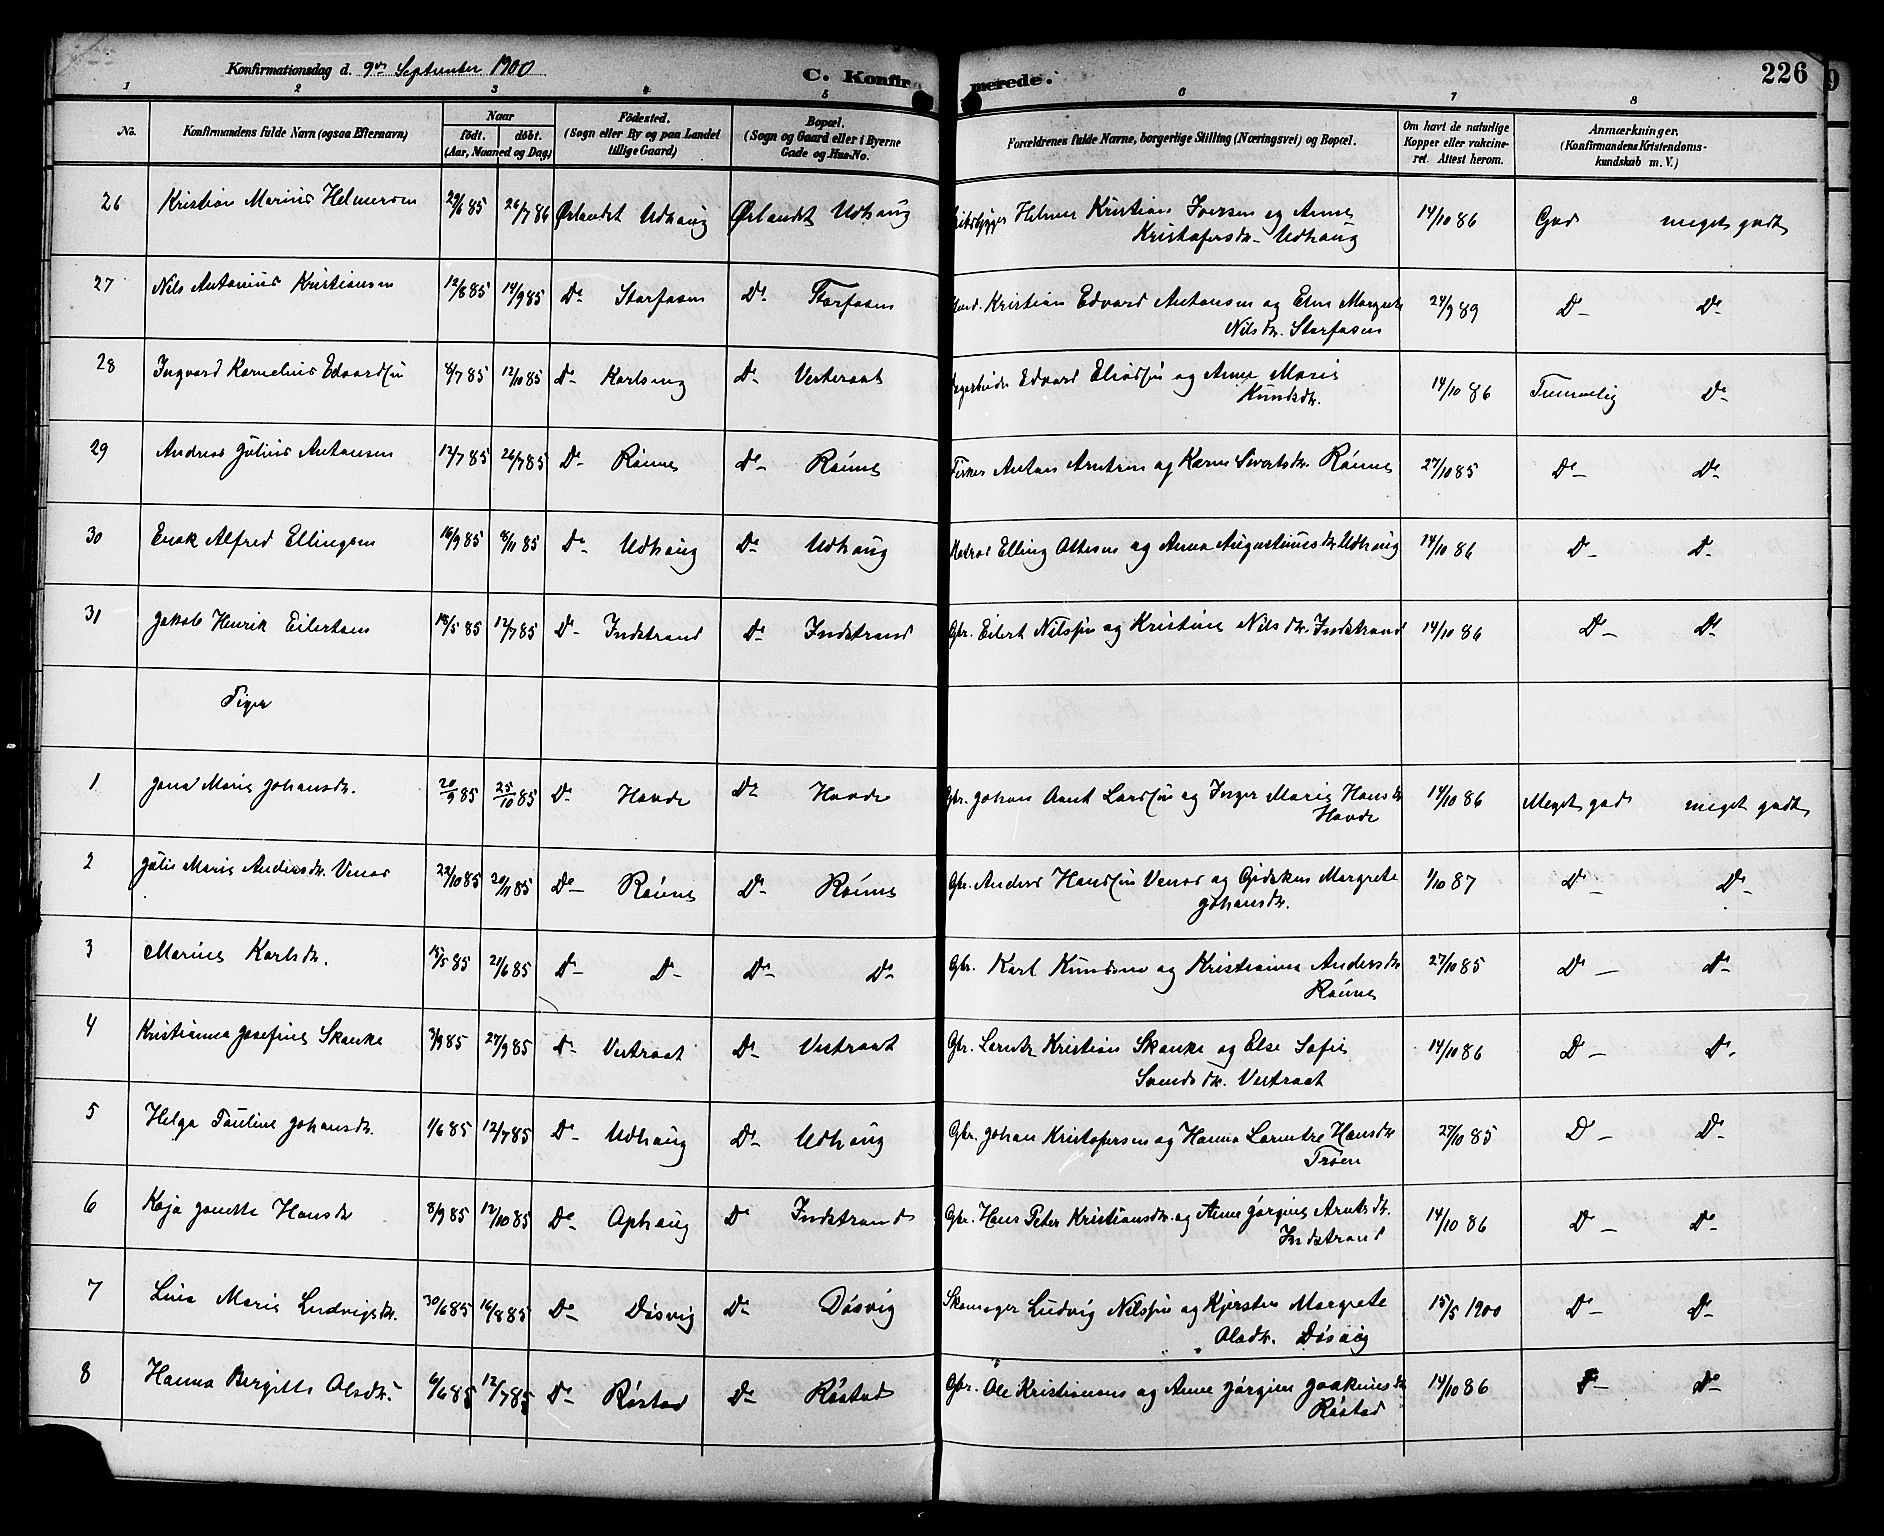 Konfirmationsdag d. 9de September 1900
C. Konfirmerede.
226
1 2 3 4 5 6 7 8
No.
Konfirmandens fulde Navn (ogsaa Efternavn)
Naar
født. døbt.
(Aar, Maaned og Dag)
Fødested.
(Sogn eller By og paa Landet
tillige Gaard)
Bopæl.
(Sogn og Gaard eller i Byerne
Gade og Hus-No.
Forældrenes fulde Navne, borgerlige Stilling (Næringsvei) og Bopæl.
Om havt de naturlige
Kopper eller vakcine-
ret. Attest herom.
Anmærkninger.
(Konfirmandens Kristendoms-
kundskab m. V.)
26 Kristian Marius Helmersen 29/6 85 26/7 86 Ørlandet Udhaug Ørlandet Udhaug Helmer Kristian Iversen og Anne 14/10 86 God meget godt
Kristofersdr. Udhaug
27 Nils Antonius Kristiansen 12/8 85 14/9 85 Do Storfosen Do Storfosen Kristian Edvard Antonsen og Elen Margrete 24/9 89 Do Do
Nilsdr. Storfosen
28 Ingvard Kornelius Edvardsen 8/7 85 12/10 85 Do Karlseng Do Vesteraat Edvard Eliassen og Anne Marie 14/10 86 Temmelig Do
Knudsdr.
29 Andreas Julius Antonsen 12/7 85 26/7 85 Do Rønne Do Rønne Fisker Anton Arntsen og Karen Sivertsdr. Rønne 27/10 85 Do Do
30 Enok Alfred Ellingsen 16/9 85 8/11 85 Do Udhaug Do Udhaug Matros Elling Ottesen og Anna Augustinusdr. Udhaug 14/10 86 Do Do
31 Jakob Henrik Eilertsen 18/5 85 12/7 85 Do Indstrand Do Indstrand Gbr. Eilert Nilssen og Kristine Nilsdr. Indstrand 14/10 86 Do Do
Piger
1 Jona Marie Johansdr. 20/9 85 25/10 85 Do Hovde Do Hovde Gbr. Johan Arnt Larssen og Inger Marie Hansdr 14/10 86 Meget god meget godt
Hovde
2 Julie Marie Andersdr. Venos 22/10 85 20/11 85 Do Rønne Do Rønne Gbr. Anders Hanssen Venos og Gidsken Margrete 1/10 87 Do Do
Johansdr.
3 Marine Karlsdr. 15/5 85 21/6 85 Do Do Do Do Gbr. Karl Knudsen og Kristianna Andersdr 27/10 85 Do Do
Rønne
4 Kristianna Josefine Skanke 3/9 85 27/9 85 Do Vestraat Do Vestraat Gbr. Lorentz Kristian Skanke og Else Sofie 14/10 86 Do Do
Tvendsdr. Vestraat
5 Helga Pauline Johansdr. 1/6 85 12/7 85 Do Udhaug Do Udhaug Gbr. Johan Kristofersen og Hanna Lorentze Hansdr 27/10 85 Do Do
Trøen
6 Kaja Janette Hansdr 8/9 85 12/10 85 Do Ophaug Do Indstrand Gbr. Hans Peter Kristiansdr. og Anne Jørgine Arntsdr. 14/10 86 Do Do
Indstrand
7 Lina Marie Ludvigsdr. 30/6 85 16/8 85 Do Døsvig Do Døsvig Skomager Ludvig Nilssen og Kjersten Margrete 15/5 1900 Do Do
Olsdr. Døsvig
8 Hanna Bergitte Olsdr. 6/6 85 12/7 85 Do Røstad Do Røstad Gbr. Ole Kristiansen og Anne Jørgine Joakimsdr 14/10 86 Do Do
Røstad